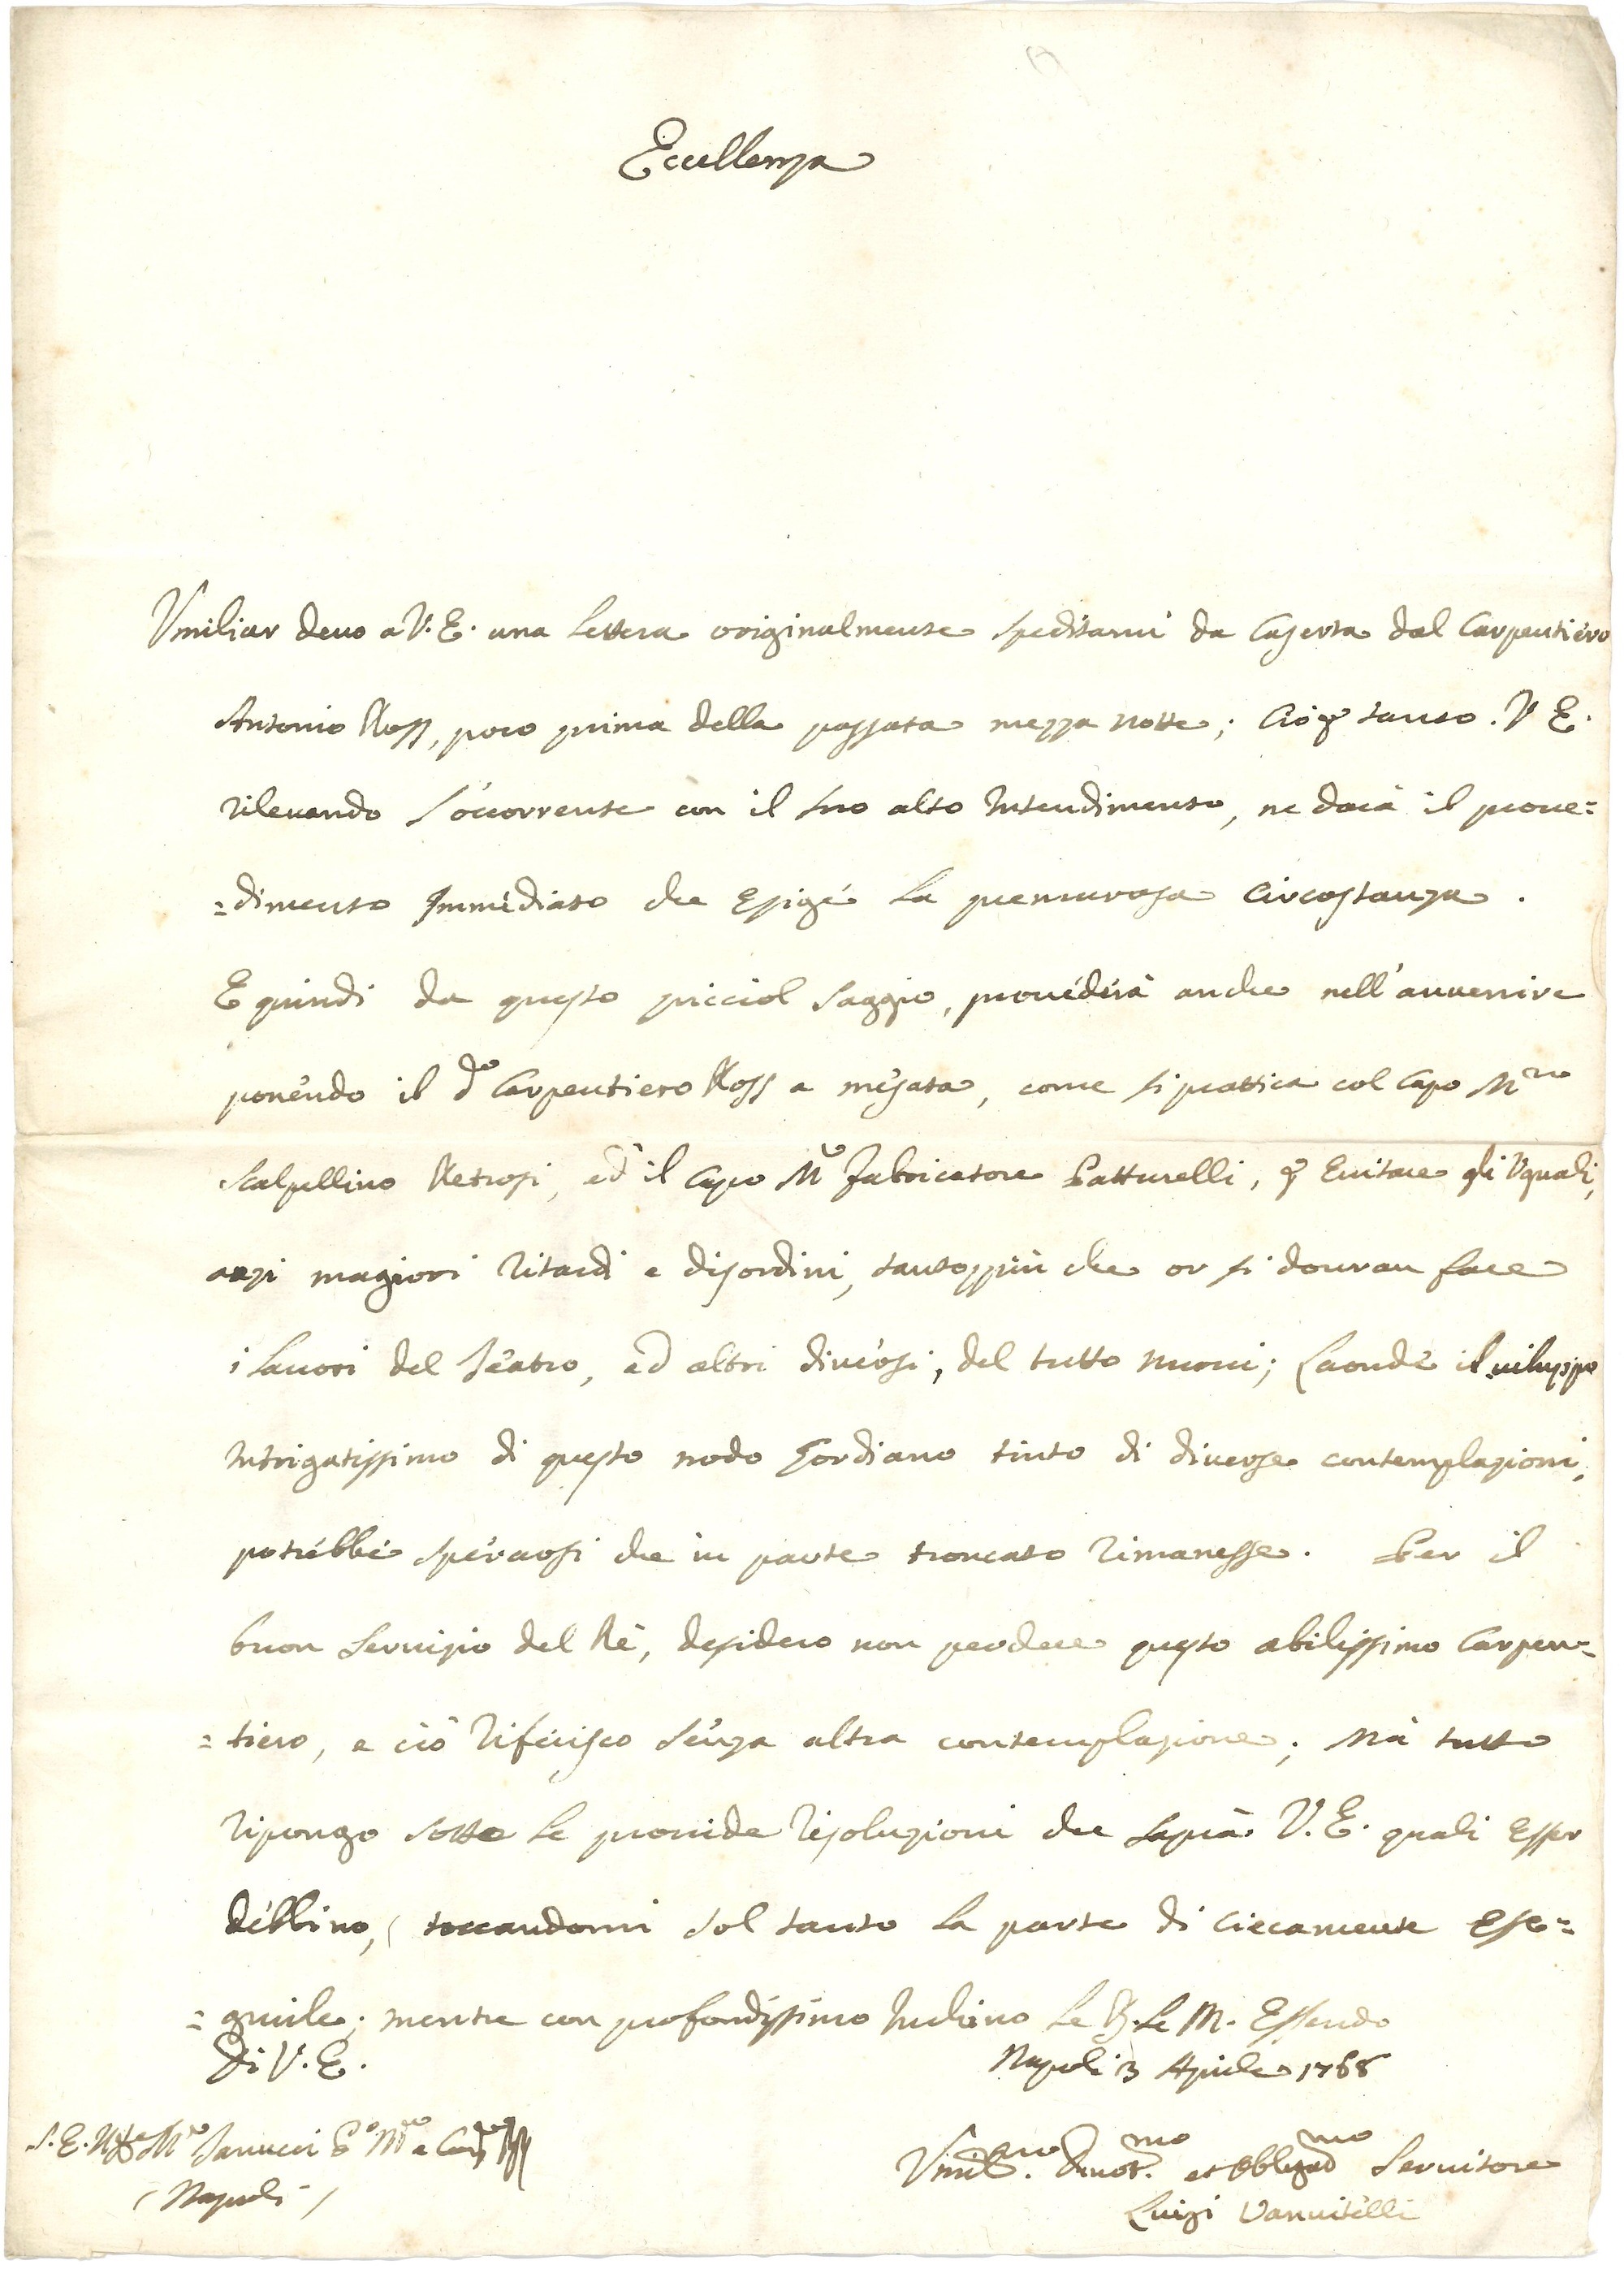 Eccellenza
Vmiliar deuo a V. E. una Lettera originalmente speditami da Caserta dal Carpentiero
Antonio Ross, poco prima della passata mezza notte; Ciò per tanto. V E.
rileuando l'occorrente con il suo alto Intendimento, ne darà il proue=
=dimento Immediato che Esige La premurosa Circostanza.
E quindi da questo picciol Saggio, prouederà anche nell'auuenire
ponendo il do Carpentiero Ross a mesata, come si prattica col Capo Mro
Scalpellino Retrosi, ed il Capo Mro Fabricatore Patturelli, per Euitare gli Vguali,
anzi magiori ritardi e disordini, tantoppiù che or si douran fare
i Lauori del Teatro, ed altri diuersi, del tutto nuoui; Laonde il uiluppo
Intrigatissimo di questo nodo Gordiano tinto di diuerse contemplazioni,
potrebbe sperarsi che in parte troncato rimanesse. Per il
buon Seruizio del Rè, desidero non perdere questo abilissimo Carpen=
=tiero, e ciò riferisco senza altra contemplazione; Mà tutto
ripongo sotto Le prouide risoluzioni che saprà V. E. quali Esser
debbino, toccandomi sol tanto La parte di Ciecamente Ese=
=guirle; mentre con profondissimo Inchino Le B. Le M. Essendo
Di V. E.
Napoli 3 Aprile 1768
S. E. Mro Tanucci
(Napoli)
Vmilmo Diuotmo et Obbligadmo Seruitore
Luigi Vanuitelli